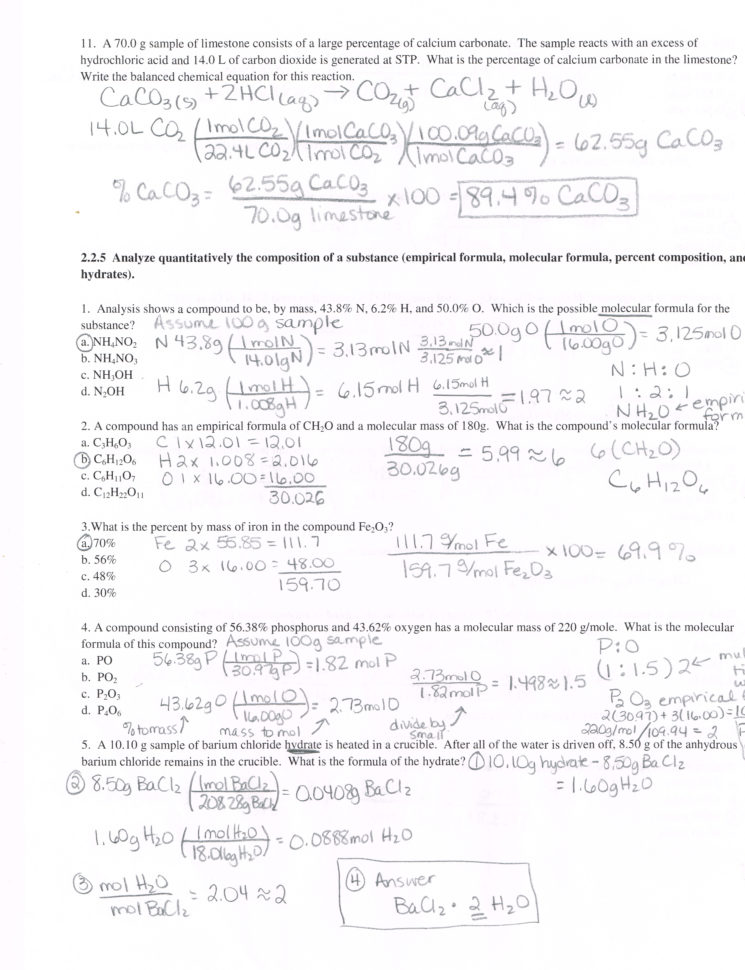 11. A 70.0 g sample of limestone consists of a large percentage of calcium carbonate. The sample reacts with an excess of
hydrochloric acid and 14.0 L of carbon dioxide is generated at STP. What is the percentage of calcium carbonate in the limestone?
Write the balanced chemical equation for this reaction.
CaCO₃(s) + 2HCl(aq) → CO₂(g) + CaCl₂(aq) + H₂O(l)
14.0L CO₂ (1molCO₂/22.4L CO₂)(1molCaCO₃/1molCO₂)(100.09gCaCO₃/1molCaCO₃) = 62.55g CaCO₃
% CaCO₃ = 62.55g CaCO₃/70.0g limestone x 100 = 89.4% CaCO₃
2.2.5 Analyze quantitatively the composition of a substance (empirical formula, molecular formula, percent composition, and
hydrates).
1. Analysis shows a compound to be, by mass, 43.8% N, 6.2% H, and 50.0% O. Which is the possible molecular formula for the
substance? Assume 100g sample
50.0gO (1molO/16.00gO) = 3.125molO
a. NH₄NO₂ N 43.8g (1molN/14.01gN) = 3.13molN 3.13molN/3.125molO ≈ 1
b. NH₄NO₃
c. NH₃OH N:H:O
d. N₂OH H 6.2g (1molH/1.008gH) = 6.15molH 6.15molH/3.125molO = 1.97 ≈ 2 1:2:1
NH₂O ← empiri
form
2. A compound has an empirical formula of CH₂O and a molecular mass of 180g. What is the compound's molecular formula?
a. C₃H₆O₃ C 1x12.01 = 12.01 180g/30.026g = 5.99 ≈ 6 6(CH₂O)
b. C₆H₁₂O₆ H 2x 1.008 = 2.016
c. C₆H₁₁O₇ O 1 x 16.00 = 16.00 C₆H₁₂O₆
d. C₁₂H₂₂O₁₁ 30.026
3.What is the percent by mass of iron in the compound Fe₂O₃?
a. 70% Fe 2x 55.85 = 111.7 111.7 g/mol Fe/159.7 g/mol Fe₂O₃ x100= 69.9%
b. 56% O 3x 16.00 = 48.00
c. 48% 159.70
d. 30%
4. A compound consisting of 56.38% phosphorus and 43.62% oxygen has a molecular mass of 220 g/mole. What is the molecular
formula of this compound? Assume 100g sample P:O
a. PO 56.38g P (1molP/30.97gP) = 1.82 molP (1:1.5)2 ← mul
b. PO₂ 2.73molO/1.82molP = 1.498 ≈ 1.5
c. P₂O₃ 43.62gO (1molO/16.00gO) = 2.73molO P₂O₃ empirical
d. P₄O₆ 2(30.97) + 3(16.00) =
% to mass mass to mol divide by small 220g/mol/109.94 = 2
5. A 10.10 g sample of barium chloride hydrate is heated in a crucible. After all of the water is driven off, 8.50 g of the anhydrous
barium chloride remains in the crucible. What is the formula of the hydrate? ① 10.10g hydrate - 8.50g BaCl₂
= 1.60gH₂O
② 8.50g BaCl₂ (1molBaCl₂/208.28gBaCl₂) = 0.0408g BaCl₂
1.60gH₂O (1molH₂O/18.016gH₂O) = 0.0888mol H₂O
③ mol H₂O/mol BaCl₂ = 2.04 ≈ 2
④ Answer
BaCl₂ · 2 H₂O